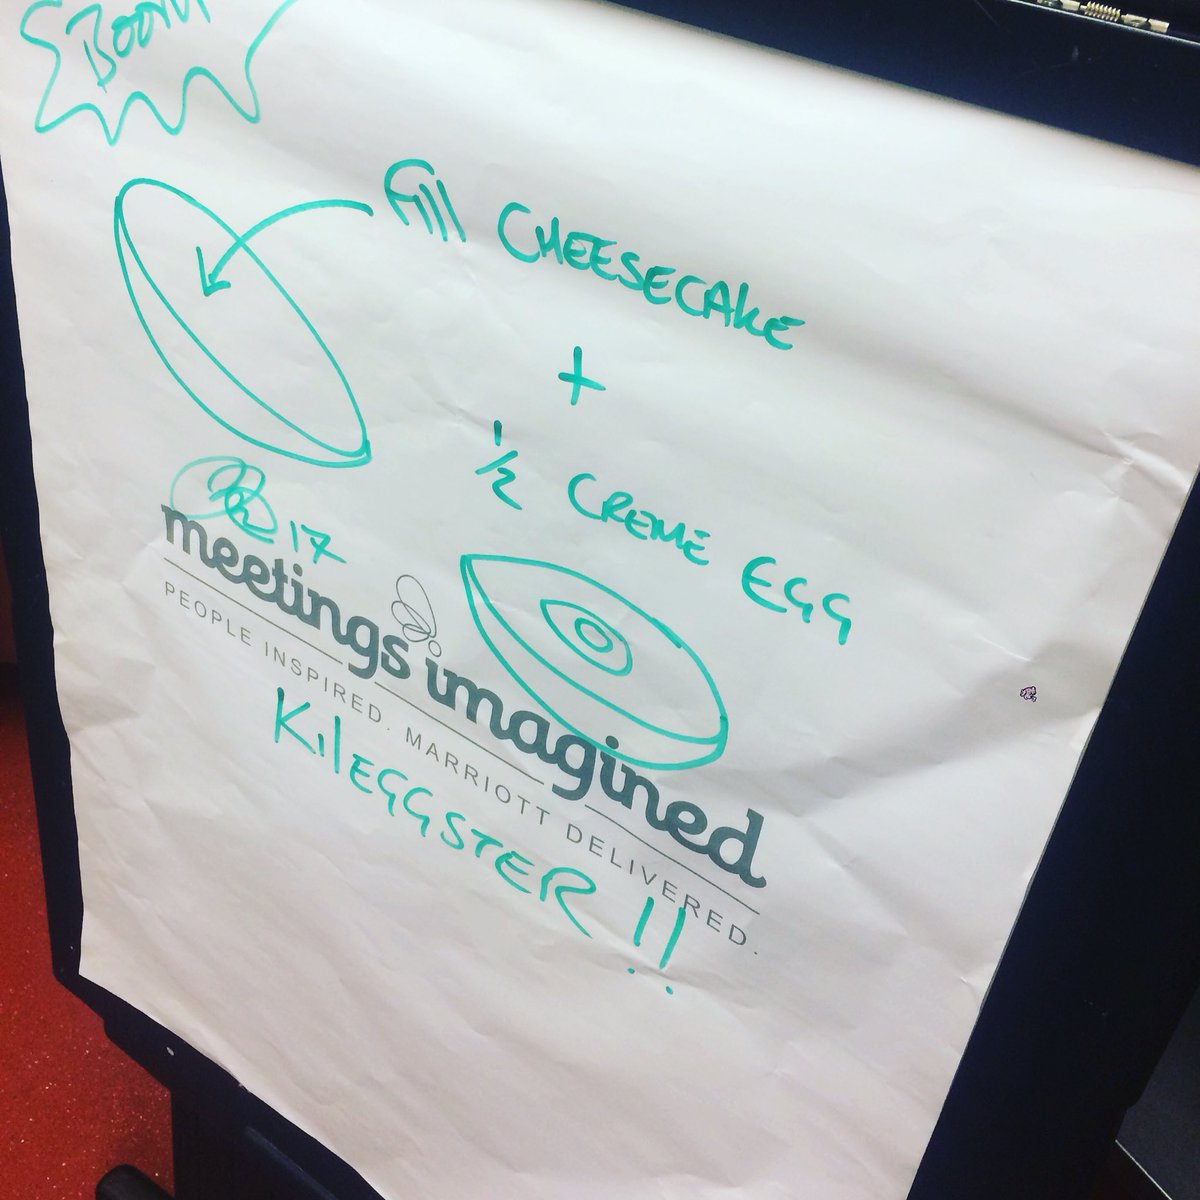 BOOM
fill CHEESECAKE
+
1/2 CREME EGG
17
meetings imagined
PEOPLE INSPIRED. MARRIOTT DELIVERED.
KilEGGSTER!!